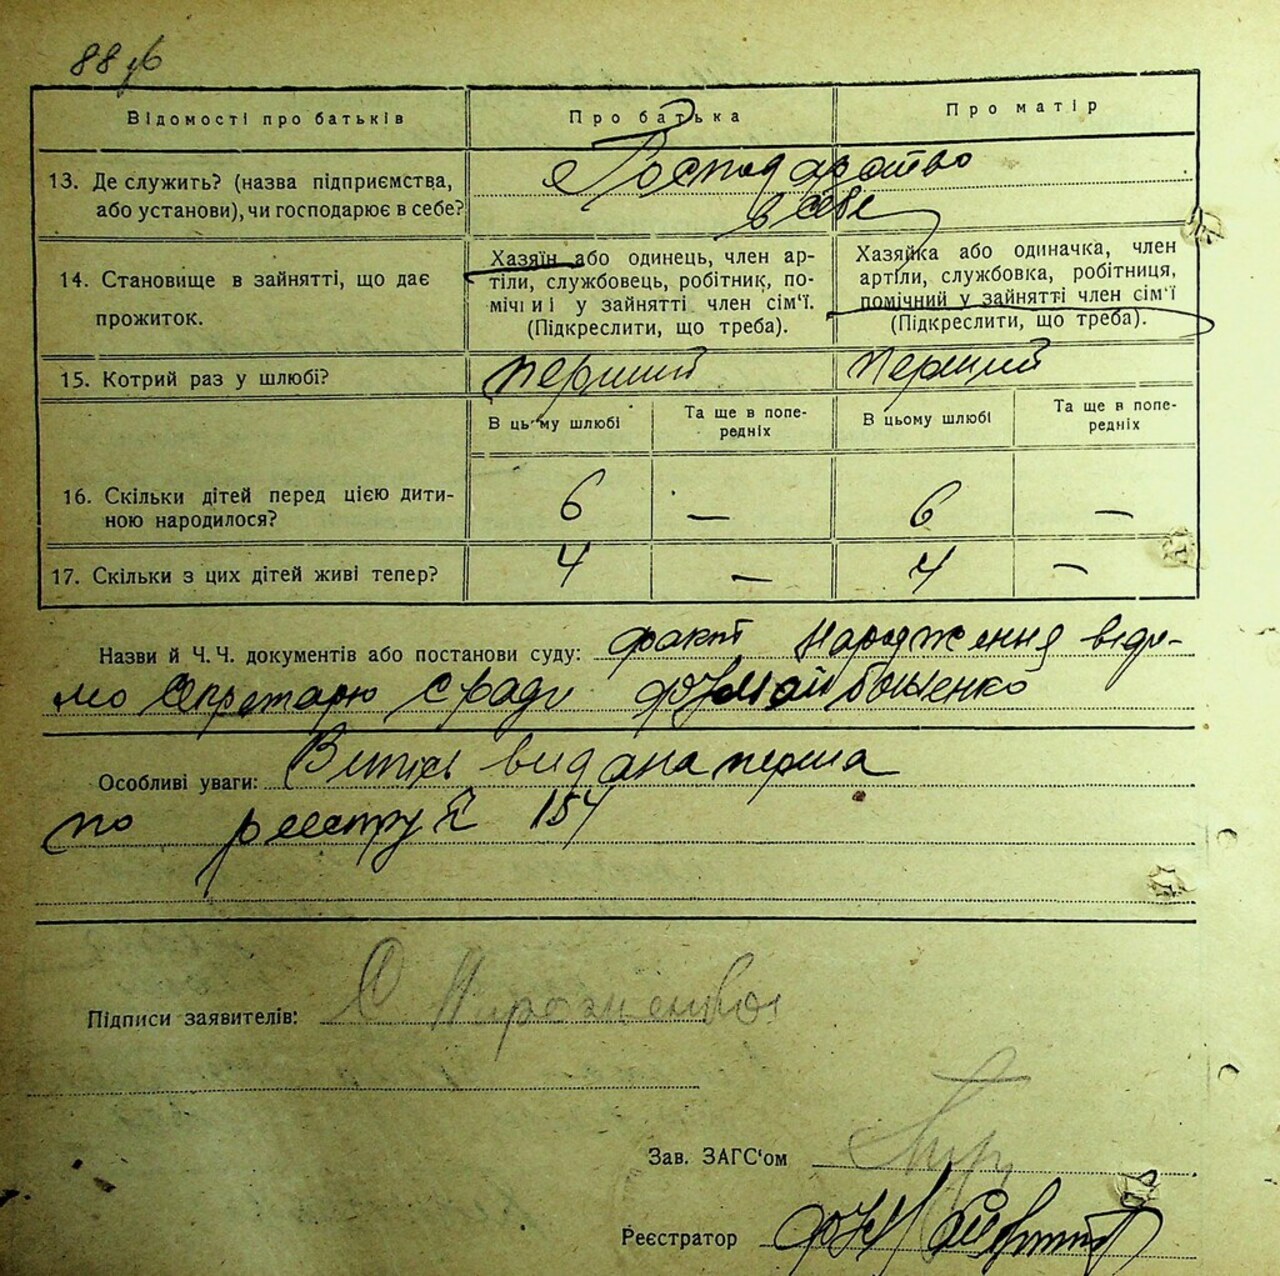 88 зв
Відомості про батьків
Про батька
Про матір
13. Де служить? (назва підприємства, або установи), чи господарює в себе?
Господарство
в себе
14. Становище в зайнятті, що дає прожиток.
Хазяїн або одинець, член ар-
тіли, службовець, робітник, по-
мічний у зайнятті член сім'ї.
(Підкреслити, що треба).
Хазяйка або одиначка, член
артіли, службовка, робітниця,
помічний у зайнятті член сім'ї
(Підкреслити, що треба).
15. Котрий раз у шлюбі?
перший
перший
В цьому шлюбі
Та ще в попе-
редніх
В цьому шлюбі
Та ще в попе-
редніх
16. Скільки дітей перед цією дити-
ною народилося?
6
—
6
—
17. Скільки з цих дітей живі тепер?
4
—
4
—
Назви й Ч. Ч. документів або постанови суду: факт народження відо-
мо секретарю с ради
Особливі уваги: Витяг видана перша
по реєстру № 154
Підписи заявителів:
Зав. ЗАГС'ом
Реєстратор